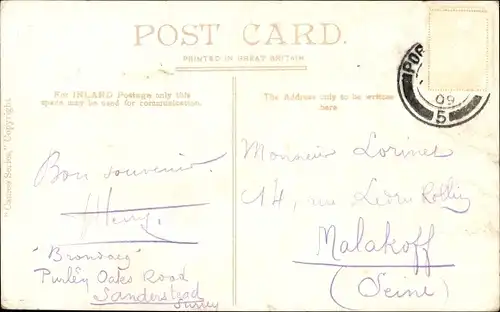 POST CARD.
PRINTED IN GREAT BRITAIN
For INLAND Postage only this
space may be used for communication.
The Address only to be written
here
"Cameo Series," Copyright
POR
09
5
Bon souvenir.
Henry
Purley Oaks Road
Sanderstead
Surrey
Monsieur Lorinet
14, rue Ledru Rollin
Malakoff
(Seine)